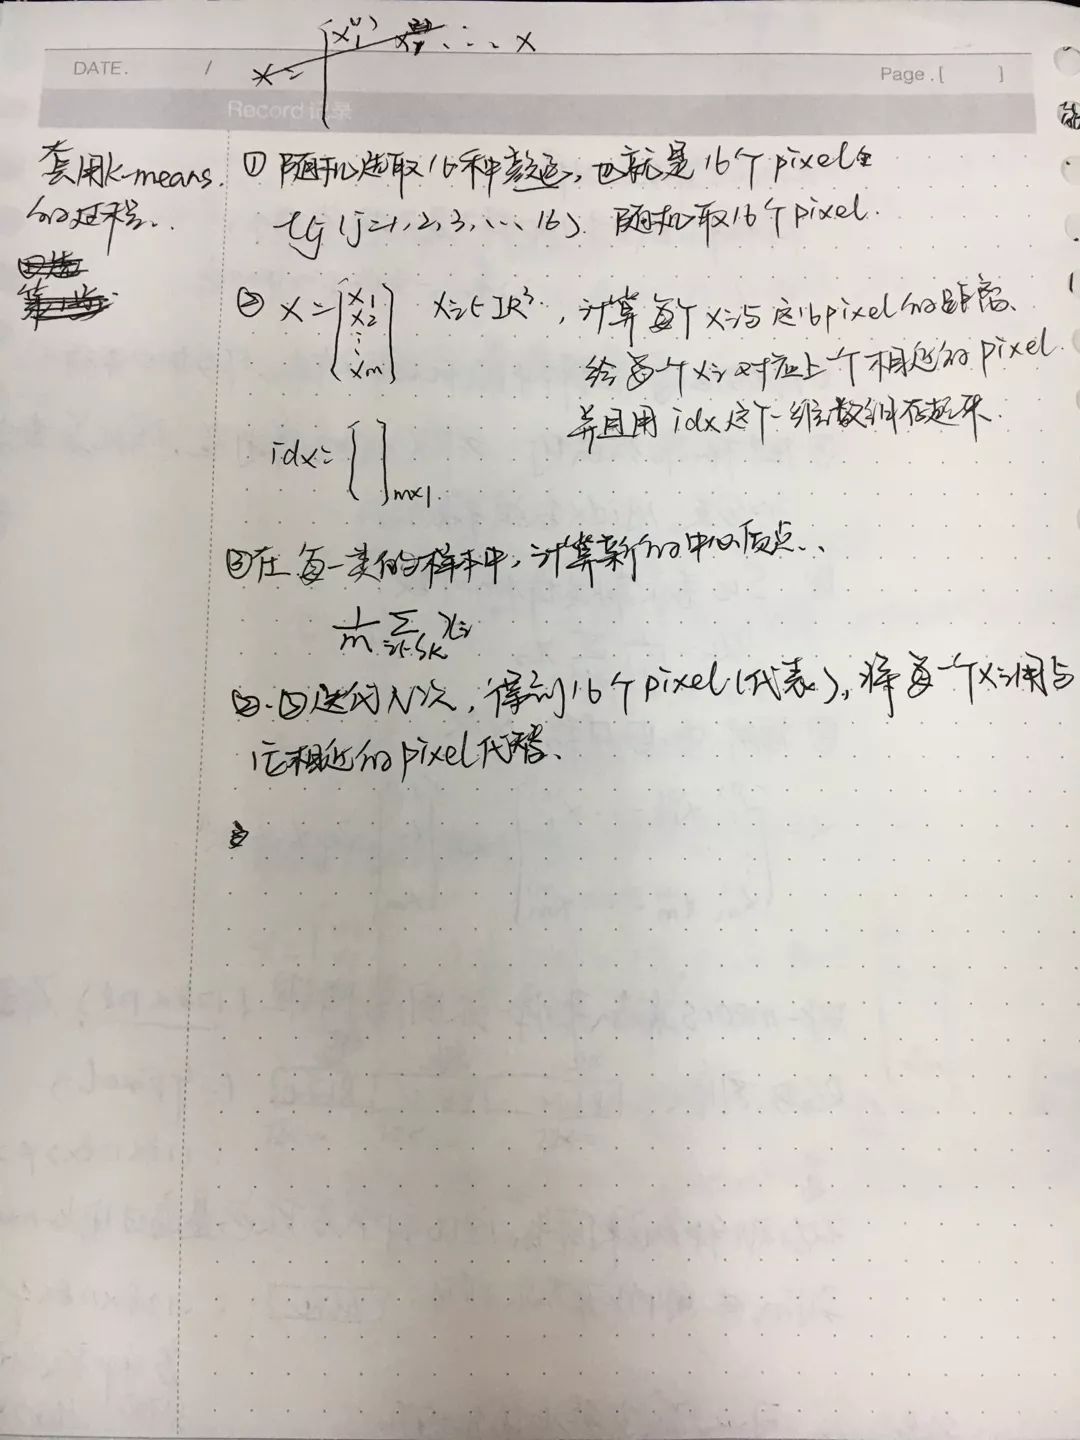 DATE. /
Page.[ ]
Record 记录
套用K-means
的过程.
① 随机选取16种颜色, 也就是16个pixel
tj (j=1,2,3,... 16) 随机取16个pixel.
② X = [x1 x2 ⋮ xm] xi∈IR³, 计算每个xi与这16pixel的距离、
给每个xi对应上一个相近的pixel
并且用idx这个一维数组存起来.
idx= [ ]m×1
③在每一类的样本中, 计算新的中心质点..
1/m Σi∈Sk xi
②.③迭代N次, 得到16个pixel(代表), 将每一个xi用与
它相近的pixel代替、